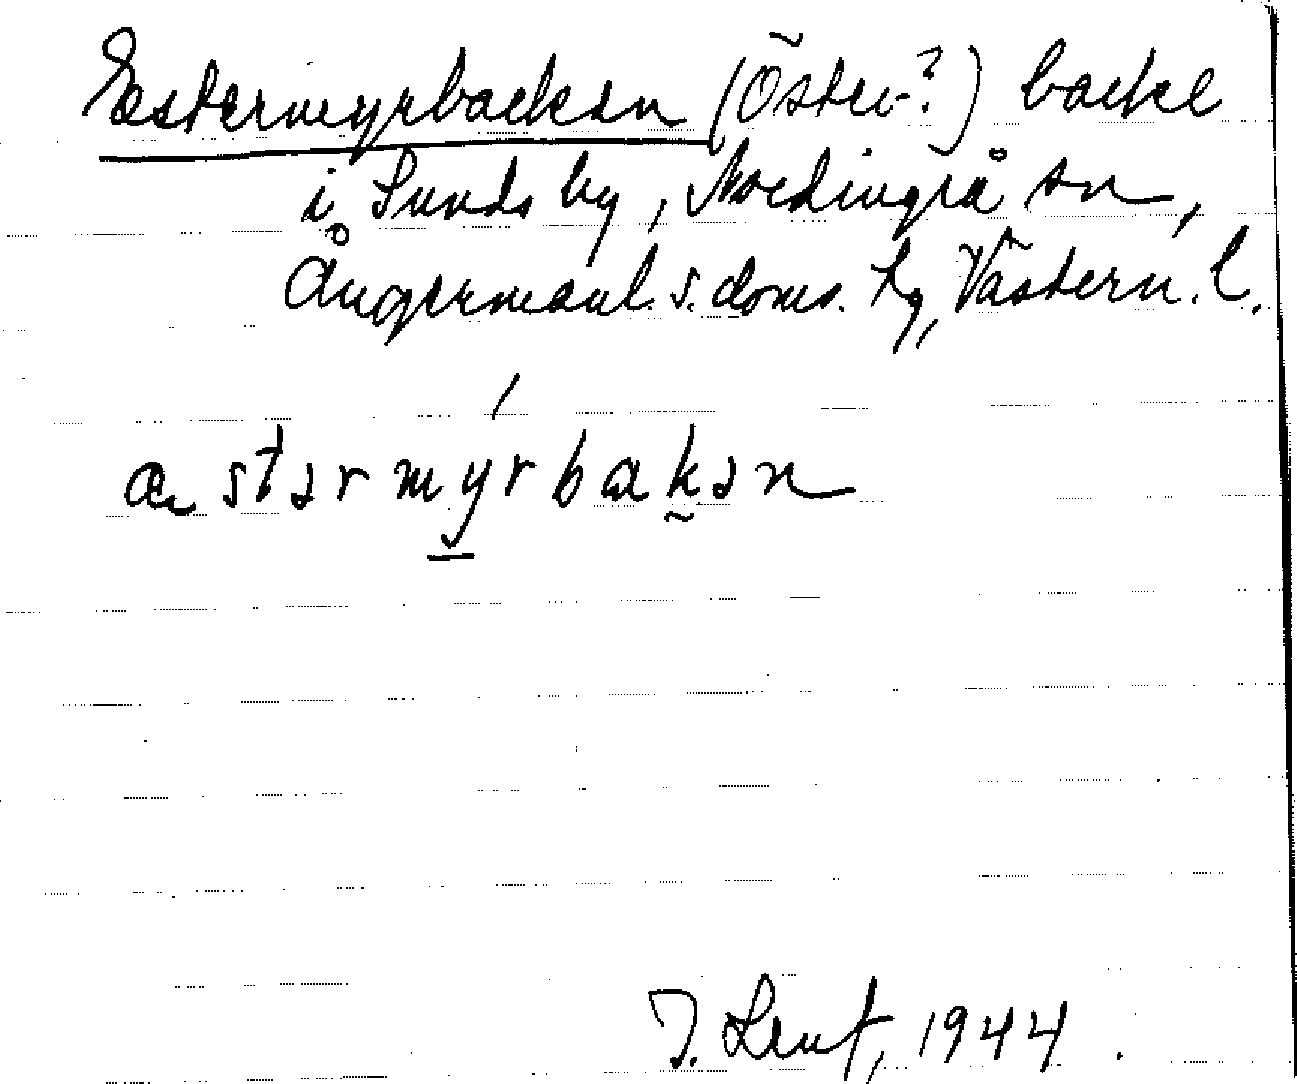 Estermyrbacken (Öster-?) backe
i Sunds by, Nordingrå sn,
Ångermanl. s. doms. hg, Västern. l.
æstərmyrbakən
1944.